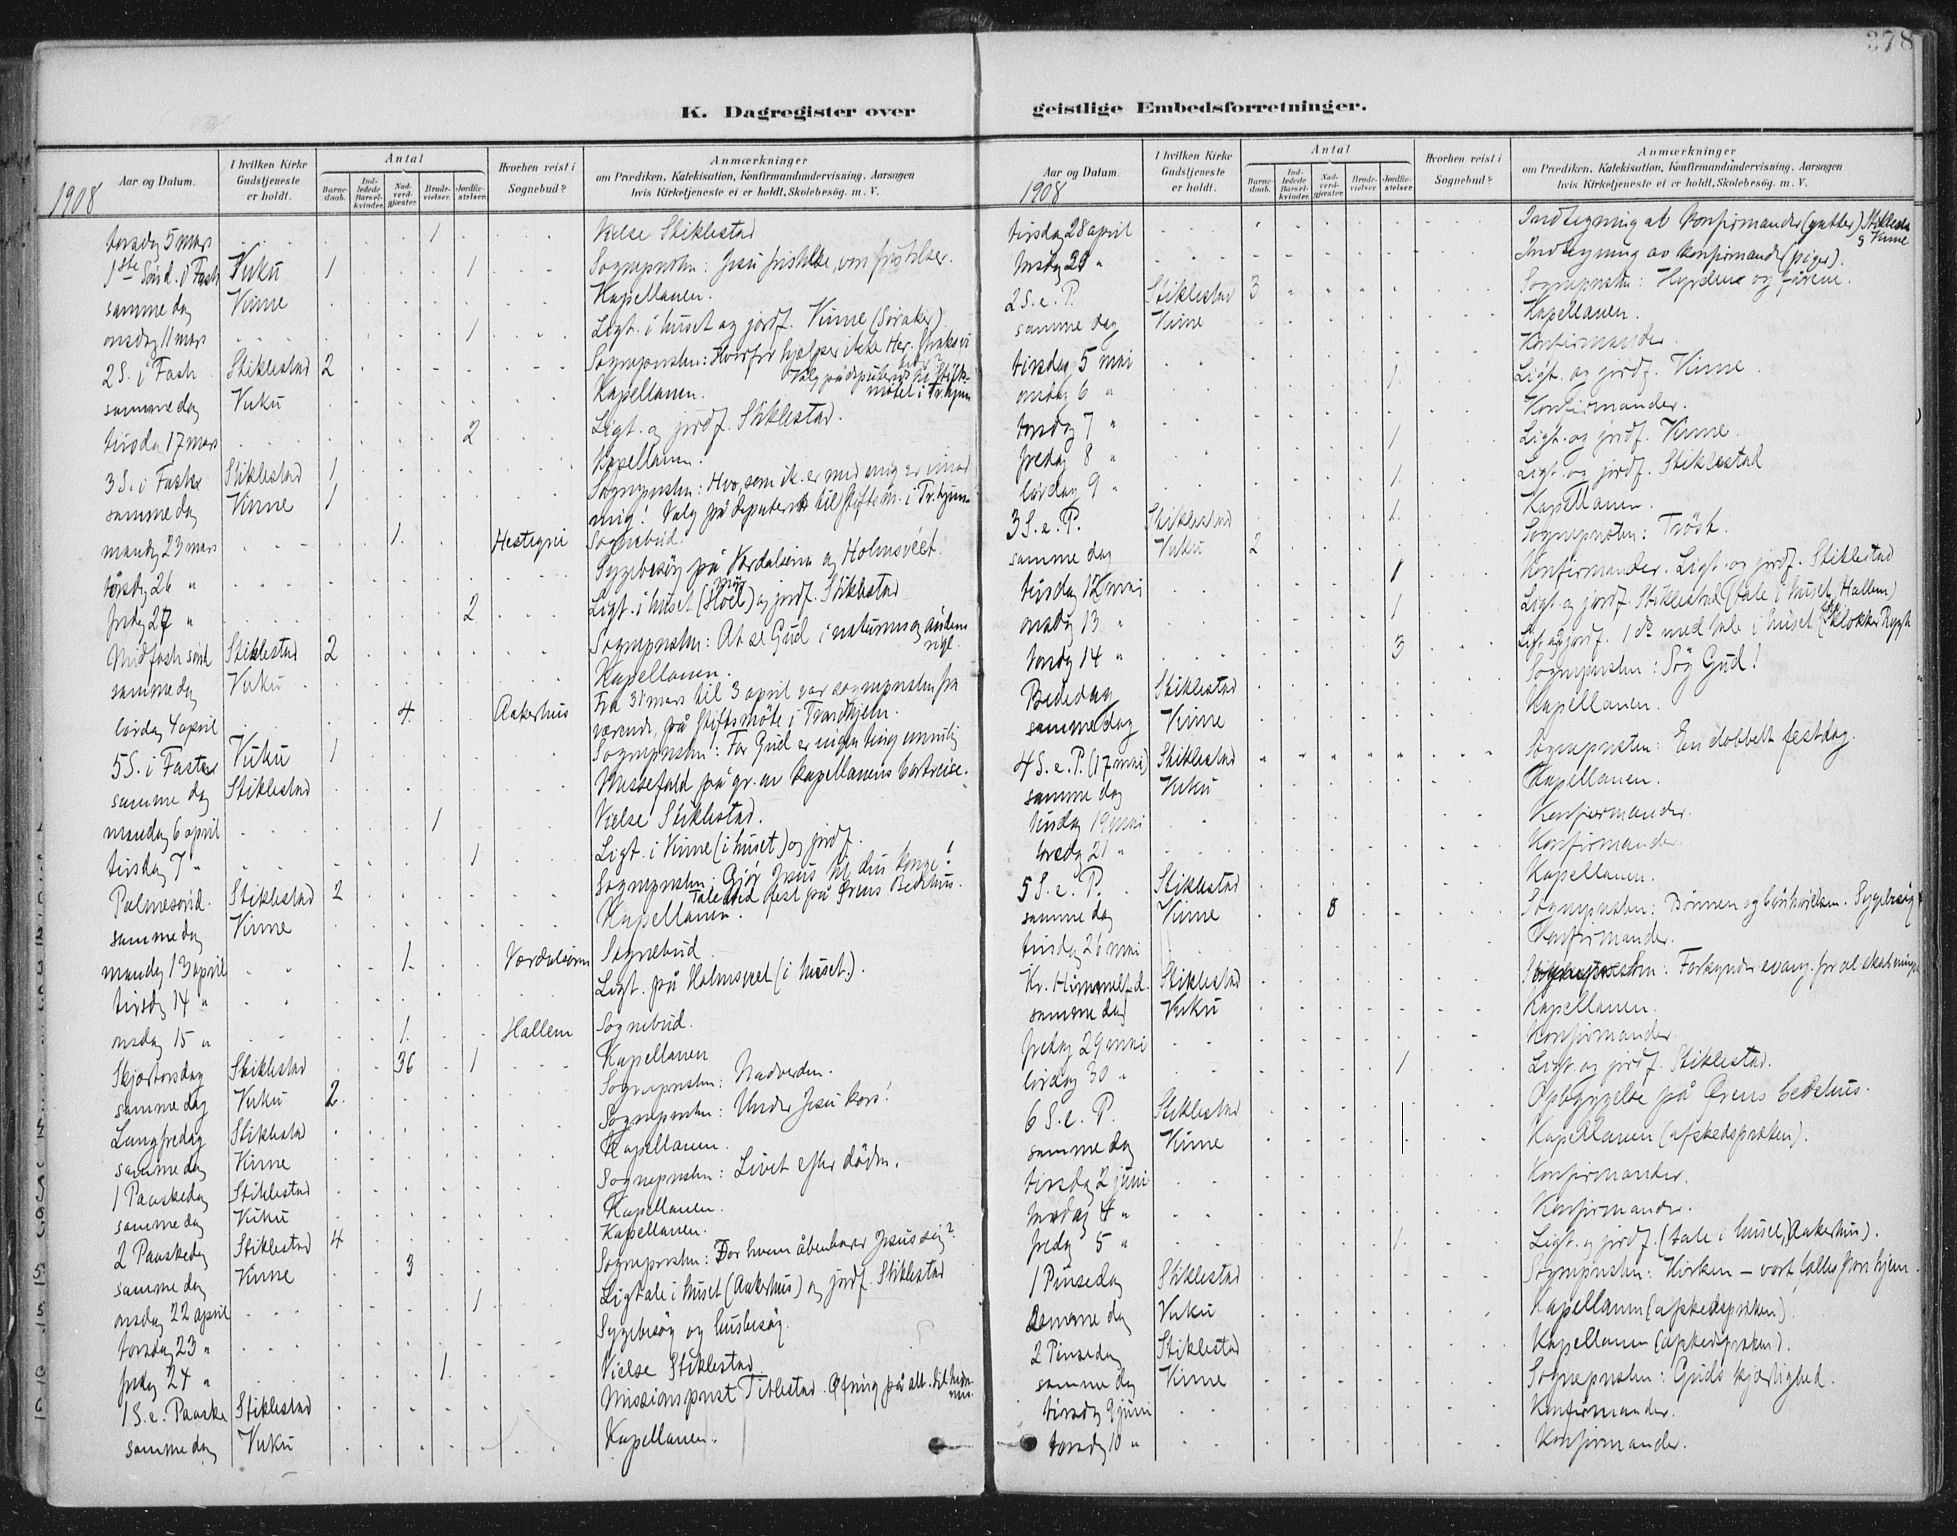 378
K. Dagregister over geistlige Embedsforretninger.
Aar og Datum.
I hvilken Kirke Gudstjeneste er holdt.
Antal
Barnedaab.
Indledede Barselkvinder.
Nadverdgjæster.
Brudevielser.
Jordfæstelser.
Hvorhen reist i Sognebud?
Anmærkninger
om Prædiken, Katekisation, Konfirmandundervisning, Aarsagen
hvis Kirketjeneste ei er holdt, Skolebesøg. m. V.
1908
torsdag 5 mars 1 Vielse Stiklestad
1ste Sönd. i Faste Vuku 1 1 Sogneprsten: Jesu fristelse, vor fristelse.
samme dag Vinne Kapellanen.
onsdag 11 mars 1 Ligt. i huset og jordf. Vinne
2 S. i Fast. Stiklestad 2 Sogneprsten: Hvorfor hjælper ikke Her. straks
samme dag Vuku Kapellanen. Valg på til Stiftsmötet i Tr.hjem
tirsdag 17 mars 2 Ligt. og jordf. Stiklestad.
3 S. i Fasten Stiklestad 1 Kapellanen.
samme dag Vinne 1 Sogneprsten: Hvo, som ik. er med mig er imod
mig! Valg på til Stiftsm. i Tr.hjem
mandag 23 mars 1. Hestegrei Sognebud.
torsdag 26 " Sygebesög på Værdalsören og Holmsveet.
fredag 27 " 2 Ligt. i huset og jordf. Stiklestad
Midfaste sönd Stiklestad 2 Sogneprsten: At se Gud i naturens og åndens rige.
samme dag Vuku Kapellanen.
lördag 4 april 4. Aakerhus Fra 31 mars til 3 april var sogneprsten fra
værende, på Stiftsmöte i Trondhjem.
5 S. i Fasten Vuku 1 Sogneprsten: For Gud er ingen ting umulig
samme dag Stiklestad Messefald på gr. av kapellanens bortreise.
mandag 6 april 1 Vielse Stiklestad.
tirsdag 7 " 1 Ligt. i Vinne (i huset) og jordf.
Palmesönd. Stiklestad 2 Sogneprsten: Gjör Jesus til din konge!
samme dag Vinne Kapellanen. Tale ved fest på Örens Bedehus.
mandag 13 april 1. Værdalsören Sognebud
tirsdag 14 " Ligt. på Holmsveet (i huset).
onsdag 15 " 1. Hallem Sognebud.
Skjærtorsdag Stiklestad 36 1 Kapellanen
samme dag Vuku 2. Sogneprsten: Nadverden.
Langfredag Stiklestad Sogneprsten: Under Jesu kors!
samme dag Vinne Kapellanen.
1 Paaskedag Stiklestad Sogneprsten: Livet efter döden.
samme dag Vuku Kapellanen.
2 Paaskedag Stiklestad 4 Kapellanen.
samme dag Vinne 3 Sogneprsten: For hvem åbenbarer Jesus sig?
onsdag 22 april 1 Ligtale i huset (Aakerhus) og jordf. Stiklestad
torsdag 23 " Sygebesög og husbesög.
fredag 24 " 1. Vielse Stiklestad
1 S. e. Paaske Stiklestad Missionsprest Titlestad. Ofring på alt. til hedn. mis.
samme dag Vuku Kapellanen.
Aar og Datum.
I hvilken Kirke Gudstjeneste er holdt.
Antal
Barnedaab.
Indledede Barselkvinder.
Nadverdgjæster.
Brudevielser.
Jordfæstelser.
Hvorhen reist i Sognebud?
Anmærkninger
om Prædiken, Katekisation, Konfirmandundervisning, Aarsagen
hvis Kirketjeneste ei er holdt, Skolebesøg. m. V.
1908
tirsdag 28 april Indtegning at konfirmander (gutter) Stiklestad & Vinne
torsdag Indtegning av konfirmander (piger).
2 S. e. P. Stiklestad 3 Sogneprsten: Hyrden og fårene.
samme dag Vinne Kapellanen.
tirsdag 5 mai Konfirmander
onsdag 6 " 1. Ligt. og jordf. Vinne.
torsdag 7 " Konfirmander.
fredag 8 " 1 Ligt. og jordf. Vinne.
lördag 9 " 1. Ligt. og jordf. Stiklestad
3 S. e. P. Stiklestad 1. Kapellanen.
samme dag Vuku 2 Sogneprsten: Tröst.
tirsdag 12 mai 1 Konfirmander. Ligt. og jordf. Stiklestad
onsdag 13 " 1 Ligt og jordf. Stiklestad (tale i huset, Hallem)
torsdag 14 " 3 Ligt. og jordf. 1 do med tale i huset
Bededag Stiklestad Sogneprsten: Søg Gud!
samme dag Vinne Kapellanen.
4 S. e. P. (17 mai) Stiklestad Sogneprsten: En dobbelt festdag.
samme dag Vuku Kapellanen.
tirsdag 19 mai Konfirmander.
torsdag 21 " Konfirmander.
5 S. e. P. Stiklestad Kapellanen.
samme dag Vinne 8 Sogneprsten: Bönnen og bönhörelsen. Sygebesög
tirsdag 26 mai Konfirmander.
Kr. Himmelf. d. Stiklestad Sogneprsten: Forkynder evang. for al skabningen
samme dag Vuku Kapellanen.
fredag 29 mai Konfirmander.
lördag 30 " 1 Ligt og jordf. Stiklestad.
Opbyggelse på Ørens bedehus.
6 S. e. P. Stiklestad
samme dag Vinne Kapellanen (afskedspræken).
tirsdag 2 juni Konfirmander.
torsdag 4 " Konfirmander.
fredag 5 " 1. Ligt. og jordf. (tale i huset, Aakerhus).
1 Pinsedag Stiklestad Sogneprsten: Kirken – vort hjem.
samme dag Vuku Kapellanen (afskedspræken).
2 Pinsedag Stiklestad Kapellanen (afskedspræken).
samme dag Vinne Sogneprsten: Guds kjærlighed.
tirsdag 9 juni Konfirmander.
torsdag 10 " Konfirmander.